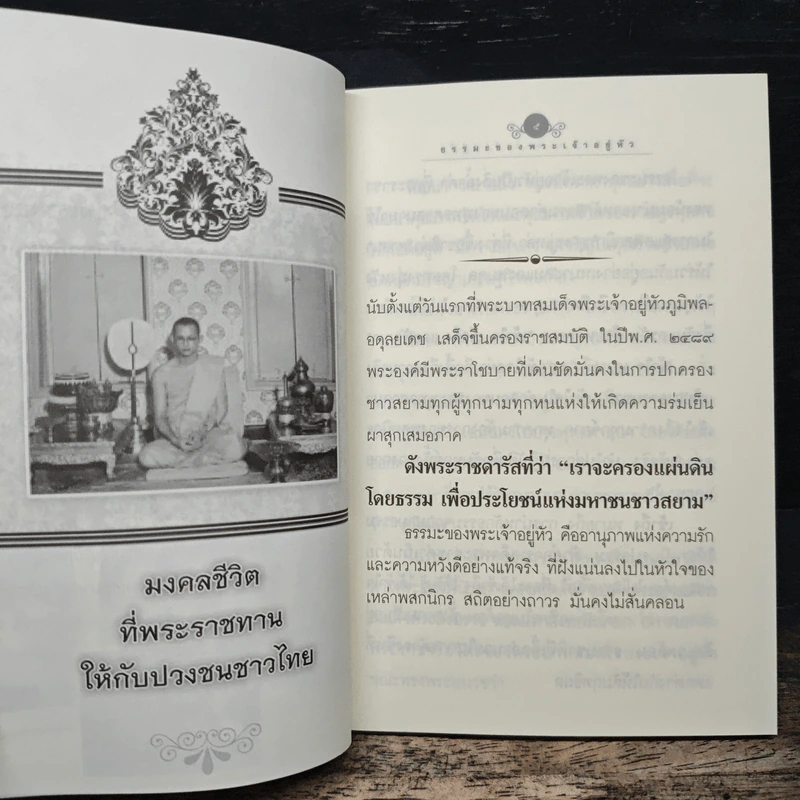 มงคลชีวิต
ที่พระราชทาน
ให้กับปวงชนชาวไทย
๕
ธรรมะของพระเจ้าอยู่หัว
นับตั้งแต่วันแรกที่พระบาทสมเด็จพระเจ้าอยู่หัวภูมิพล-
อดุลยเดช เสด็จขึ้นครองราชสมบัติ ในปีพ.ศ. ๒๔๘๙
พระองค์มีพระราโชบายที่เด่นชัดมั่นคงในการปกครอง
ชาวสยามทุกผู้ทุกนามทุกหนแห่งให้เกิดความร่มเย็น
ผาสุกเสมอภาค
ดังพระราชดำรัสที่ว่า “เราจะครองแผ่นดิน
โดยธรรม เพื่อประโยชน์แห่งมหาชนชาวสยาม”
ธรรมะของพระเจ้าอยู่หัว คืออานุภาพแห่งความรัก
และความหวังดีอย่างแท้จริง ที่ฝังแน่นลงไปในหัวใจของ
เหล่าพสกนิกร สถิตอย่างถาวร มั่นคงไม่สั่นคลอน